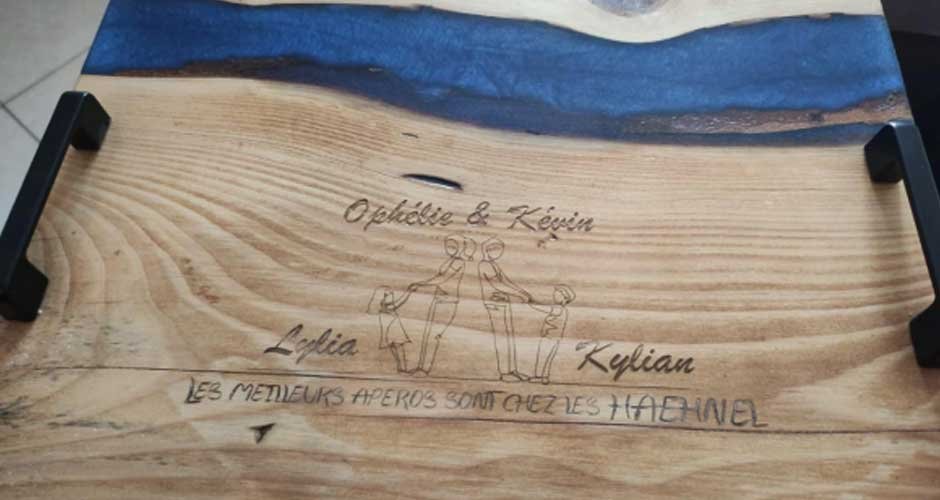 Ophélie & Kévin
Lylia Kylian
LES MEILLEURS APEROS SONT CHEZ LES HAEHNEL